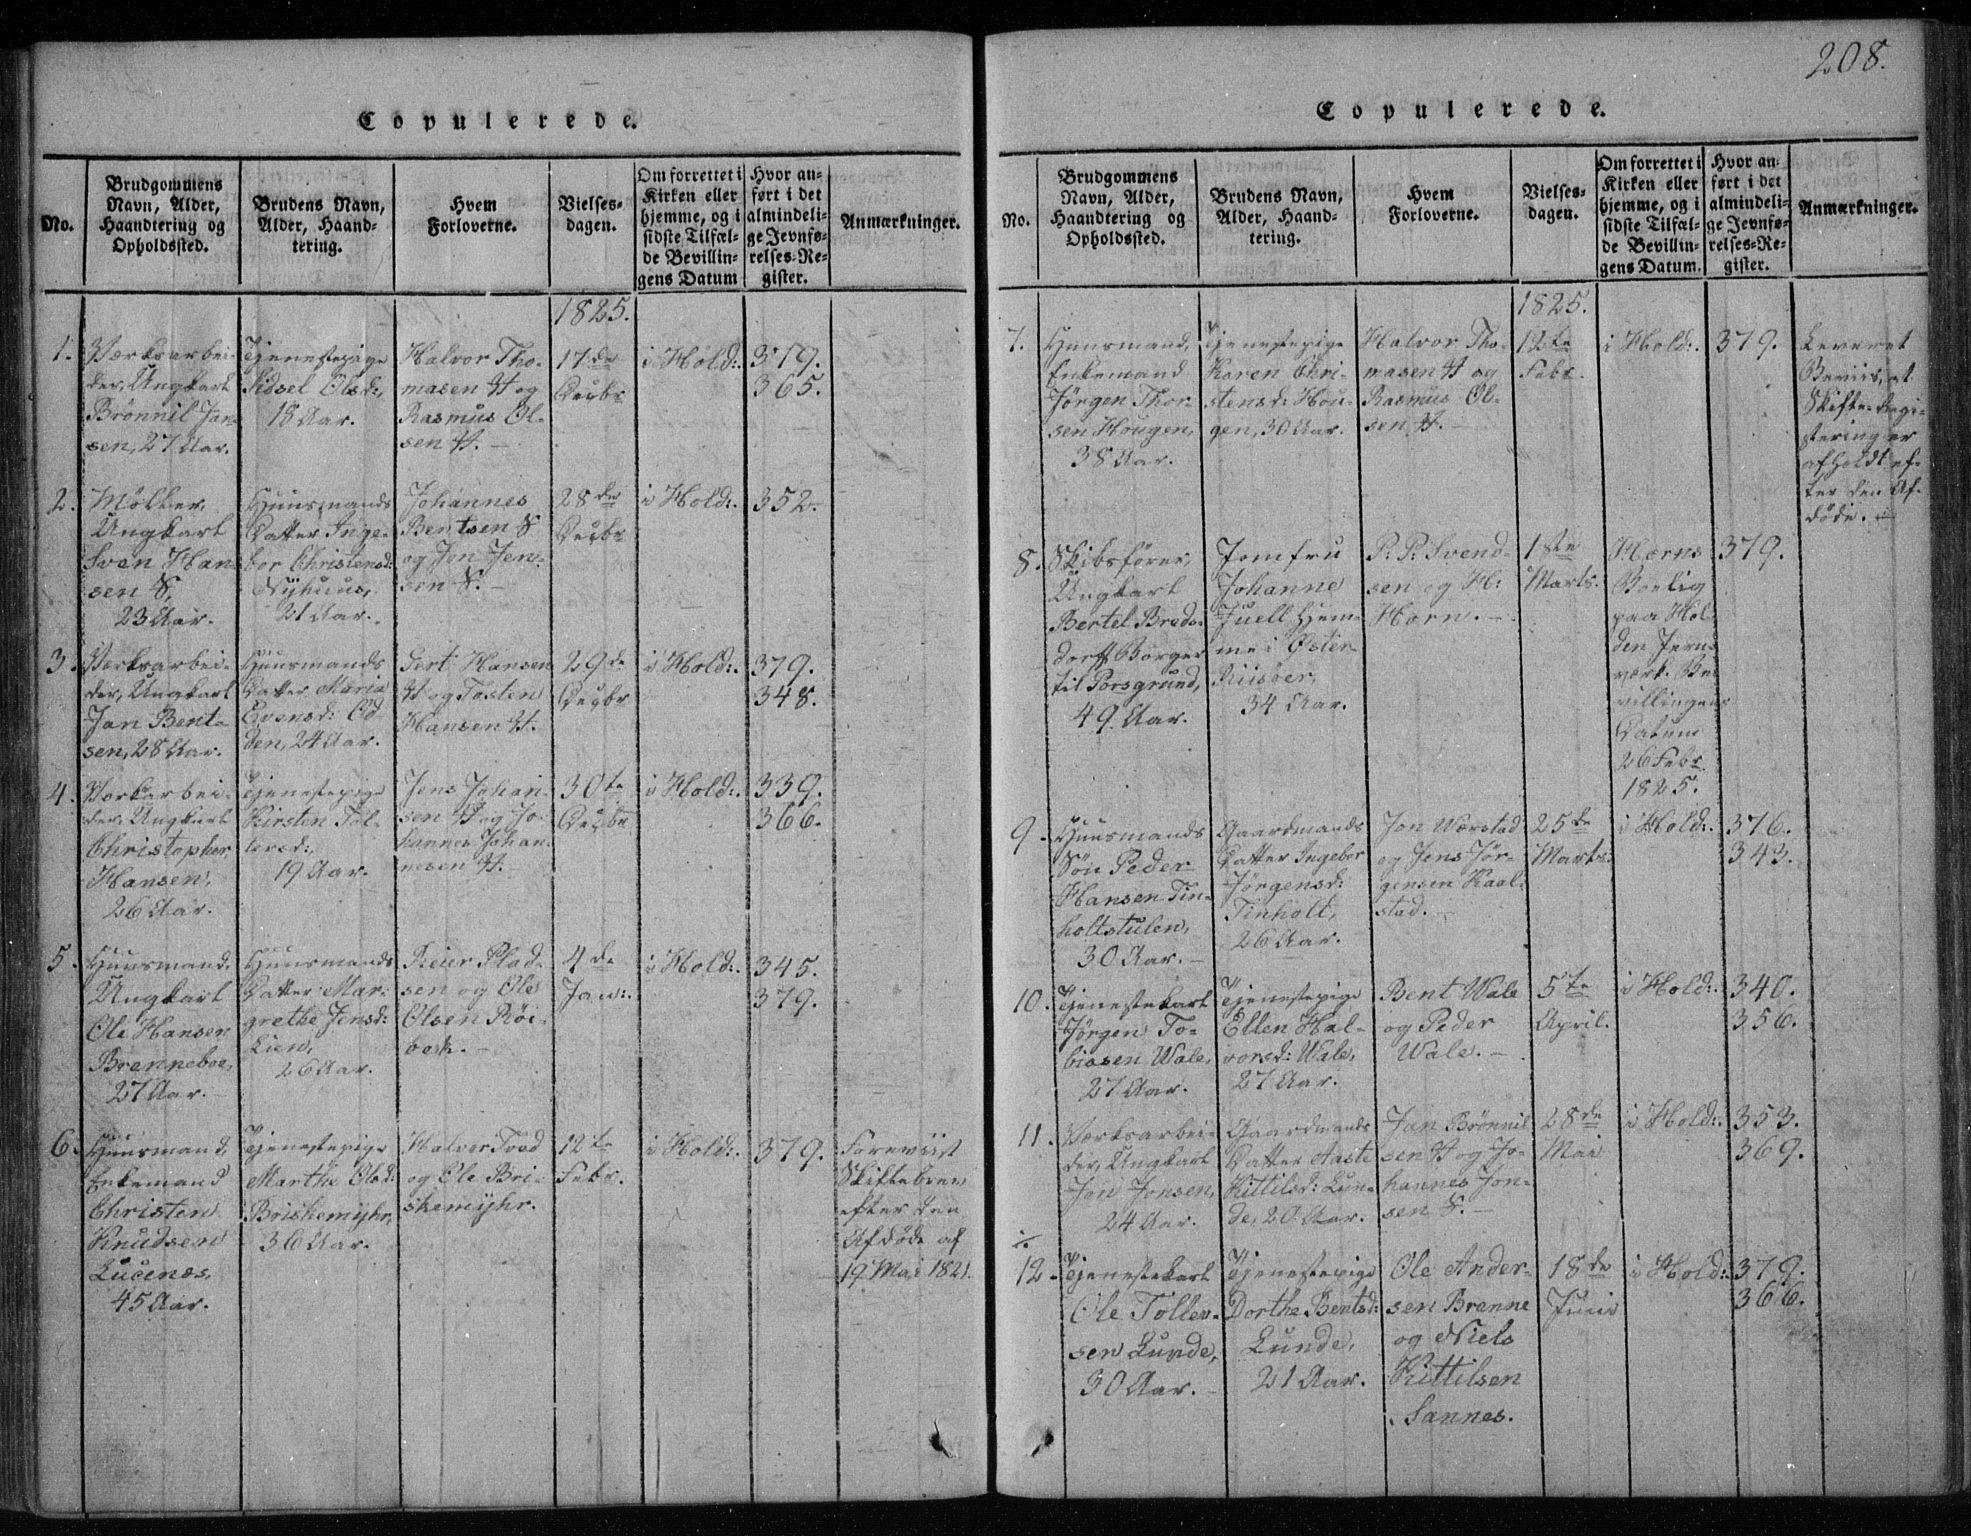 208.
Copulerede.
No.
Brudgommens
Navn, Alder,
Haandtering og
Opholdssted.
Brudens Navn,
Alder, Haand-
tering.
Hvem
Forloverne.
Vielses-
dagen.
Om forrettet i
Kirken eller
hjemme, og i
sidste Tilfæl-
de Bevillin-
gens Datum
Hvor an-
ført i det
almindeli-
ge Jevnfø-
relses-Re-
gister.
Anmærkninger.
1825.
1.
Værksarbei-
der, Ungkarl
Brønnil Jan-
sen, 27 Aar.
Tjenestepige
Sidsel Olsd:,
18 Aar.
Halvor Tho-
masen H og
Rasmus Ol-
sen H.
17de
Decbr
i Hold:.
379.
365.
2.
Møller,
Ungkarl
Sven Han-
sen S,
23 Aar.
Huusmands
Datter Inge-
bor Christensd:
Nyhuus,
21 Aar.
Johannes
Bentsen S
og Jon Jen-
sen S.
28de
Decbr
i Hold:.
352.
3.
Værksarbei-
der, Ungkarl
Jan Bent-
sen, 28 Aar.
Huusmands
Datter Maria
Evensd: Od-
den, 24 Aar.
Gert Hansen
H og Tosten
Hansen H.
29de
Decbr
i Hold:.
379.
348.
4.
Værksarbei-
der, Ungkarl
Christopher
Hansen,
26 Aar.
Tjenestepige
Kirsten Tol-
lefsd:,
19 Aar.
Jens Johan-
sen H og Jo-
hannes Johan-
nesen H.
30te
Decbr
i Hold:.
339.
366.
5.
Huusmand,
Ungkarl
Ole Hansen
Brenneboe,
27 Aar.
Huusmands
Datter Mar-
grethe Jensd:
Lien,
26 Aar.
Reier Plad-
sen og Ole
Olsen Röi-
bek.
4de
Jan:.
i Hold:.
345.
379.
6.
Huusmand,
Enkemand
Christen
Knudsen
45 Aar.
Tjenestepige
Marthe Olsd:
Briskemyhr,
36 Aar.
Halvor Tved
og Ole Bri-
skemyhr.
12te
Febr.
i Hold:.
379.
Foreviist
Skiftebrev
efter den
Afdøde af
19 Mai 1821.
Copulerede.
No.
Brudgommens
Navn, Alder,
Haandtering og
Opholdssted.
Brudens Navn,
Alder, Haand-
tering.
Hvem
Forloverne.
Vielses-
dagen.
Om forrettet i
Kirken eller
hjemme, og i
sidste Tilfæl-
de Bevillin-
gens Datum.
Hvor an-
ført i det
almindeli-
ge Jevnfø-
relses-Re-
gister.
Anmærkninger.
1825.
7.
Huusmand,
Enkemand
Jörgen Thor-
sen Hougen,
38 Aar.
Tjenestepige
Karen Chri-
stensd: Hou-
gen, 30 Aar.
Halvor Tho-
masen H og
Rasmus Ol-
sen H.
12te
Febr.
i Hold:.
379.
Leveret
Beviis, at
Skifte-Regi-
stering er
afholdt ef-
ter den Af-
døde.
8.
Skibsfører,
Ungkarl
Bertel Breds-
dorff Borger
til Porsgrund,
49 Aar.
Jomfru
Johanne
Juell Hjem-
me i Öster-
Riisöer,
34 Aar.
P. P. Svend-
sen og H:
Horn.
1ste
Marts.
Hørns
Boelig
paa Hol-
den Jern-
værk. Be-
villingens
Datum
26 Febr
1825.
379.
9.
Huusmands
Søn Peder
Hansen Tin-
holtstulen,
30 Aar.
Gaardmands
Datter Ingebor
Jörgensd:
Tinholt,
26 Aar.
Jon Wærstad
og Jens Jör-
gensen Kaal-
stad.
25de
Marts.
i Hold:.
376.
343.
10.
Tjenestekarl
Jørgen To-
biasen Wale,
27 Aar.
Tjenestepige
Ellen Hal-
vorsd: Wale,
27 Aar.
Bent Wale
og Peder
Wale.
5te
April.
i Hold:.
340.
356.
11.
Værksarbei-
der, Ungkarl
Jon Jensen,
24 Aar.
Gaardmands
Datter Aaste
Kittilsd: Lun-
de, 20 Aar.
Jan Brønnil-
sen H og Jo-
hannes Jon-
sen S.
28de
Mai
i Hold:.
353.
369.
12.
Tjenestekarl
Ole Tollev-
sen Lunde,
30 Aar.
Tjenestepige
Dorthe Bentsd:
Lunde,
21 Aar.
Ole Ander-
sen Brenne
og Niels
Kittilsen
Sannes.
18de
Juni
i Hold:.
379.
366.